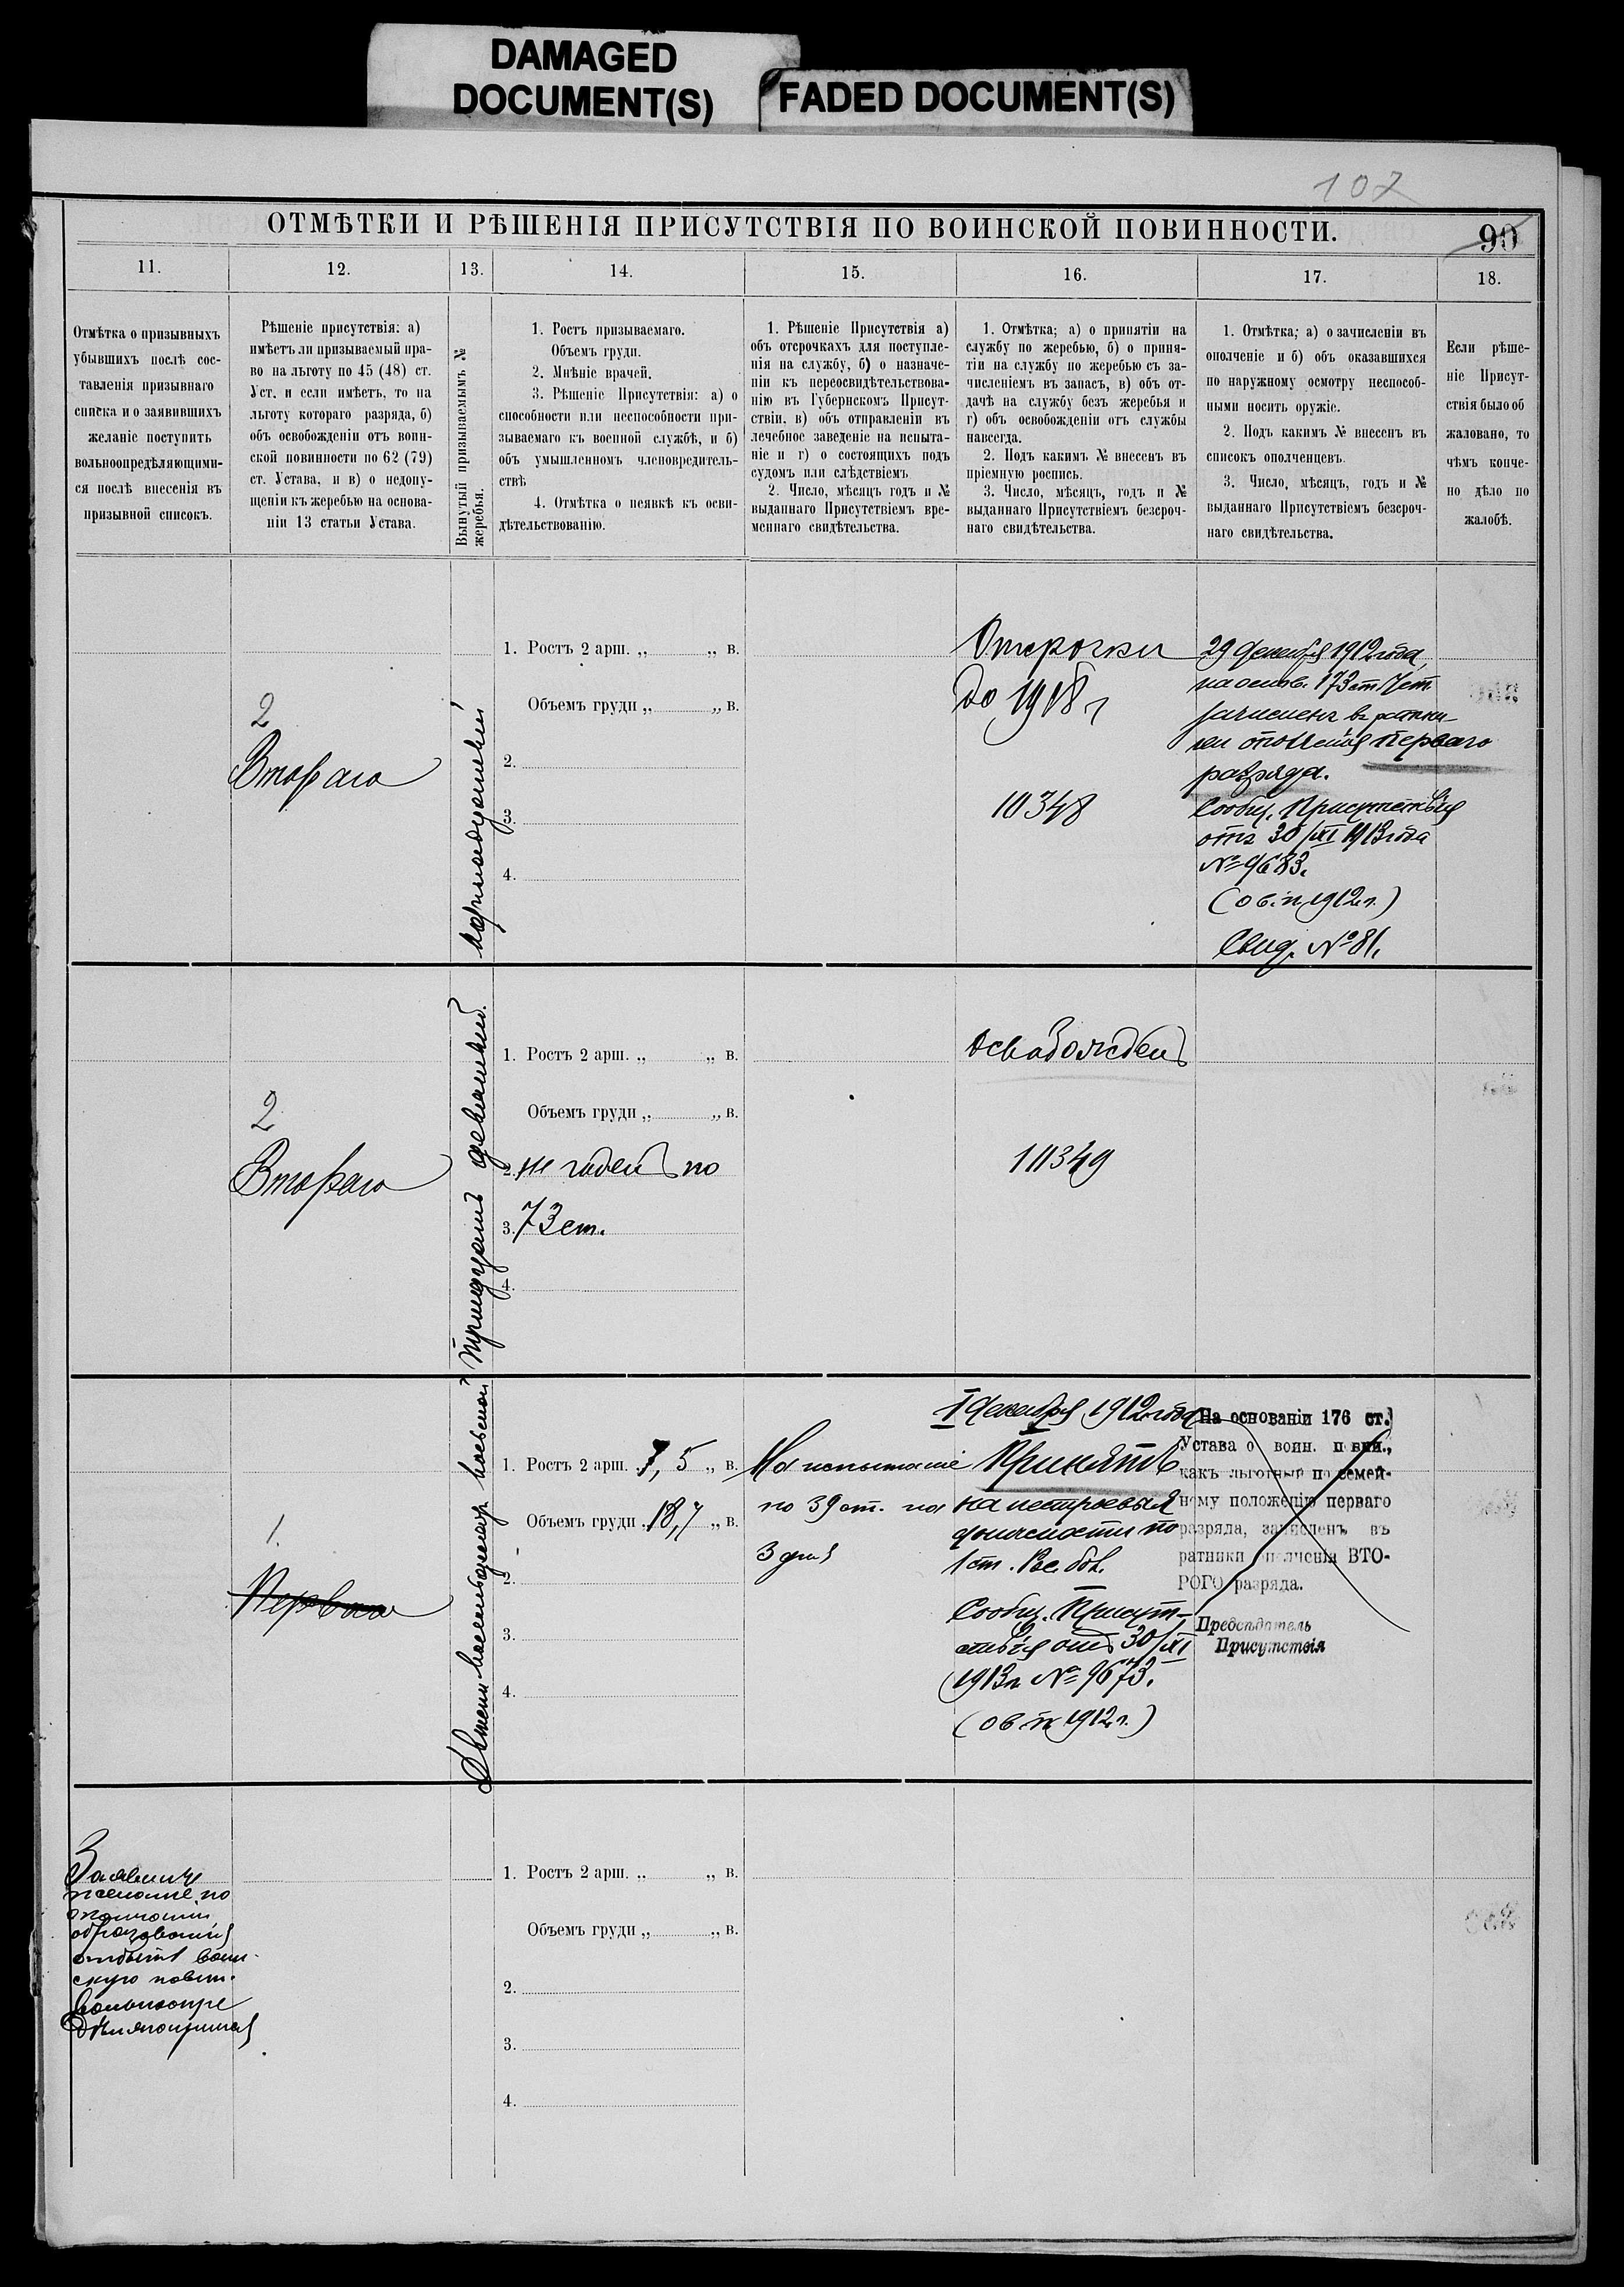 DAMAGED
DOCUMENT(S)
FADED DOCUMENT(S)
107
ОТМѢТКИ И РѢШЕНІЯ ПРИСУТСТВІЯ ПО ВОИНСКОЙ ПОВИННОСТИ.
90
11.
12.
13.
14.
15.
16.
17.
18.
Отмѣтка о призывныхъ
убывшихъ послѣ сос-
тавленія призывнаго
списка и о заявившихъ
желаніе поступить
вольноопредѣляющими-
ся послѣ внесенія въ
призывной списокъ.
Рѣшеніе присутствія: а)
имѣетъ ли призываемый пра-
во на льготу по 45 (48) ст.
Уст. и если имѣетъ, то на
льготу котораго разряда, б)
объ освобожденіи отъ воин-
ской повинности по 62 (79)
ст. Устава, и в) о недопу-
щеніи къ жеребью на основа-
ніи 13 статьи Устава.
Вынутый призываемымъ №
жеребья.
1. Ростъ призываемаго.
Объемъ груди.
2. Мнѣніе врачей.
3. Рѣшеніе Присутствія: а) о
способности или неспособности при-
зываемаго къ военной службѣ, и б)
объ умышленномъ членовредитель-
ствѣ
4. Отмѣтка о неявкѣ къ осви-
дѣтельствованію.
1. Рѣшеніе Присутствія а)
объ отсрочкахъ для поступле-
нія на службу, б) о назначе-
ніи къ переосвидѣтельствова-
нію въ Губернскомъ Присут-
ствіи. в) объ отправленіи въ
лечебное заведеніе на испыта-
ніе и г) о состоящихъ подъ
судомъ или слѣдствіемъ
2. Число, мѣсяцъ годъ и №
выданнаго Присутствіемъ вре-
меннаго свидѣтельства.
1. Отмѣтка; а) о принятіи на
службу по жеребью, б) о приня-
тіи на службу по жеребью съ за-
численіемъ въ запасъ, в) объ от-
дачѣ на службу безъ жеребья и
г) объ освобожденіи отъ службы
навсегда.
2. Подъ какимъ № внесенъ въ
пріемную роспись.
3. Число, мѣсяцъ, годъ и №
выданнаго Присутствіемъ безсроч-
наго свидѣтельства.
1. Отмѣтка; а) о зачисленіи въ
ополченіе и б) объ оказавшихся
по наружному осмотру неспособ-
ными носить оружіе.
2. Подъ какимъ № внесенъ въ
списокъ ополченцевъ.
3. Число, мѣсяцъ, годъ и №
выданнаго Присутствіемъ безсроч-
наго свидѣтельства.
Если рѣше-
ніе Присут-
ствія было об
жаловано, то
чѣмъ конче-
но дѣло по
жалобѣ.
2
Второго
1. Ростъ 2 арш. „ „ в.
Объемъ груди „ „ в.
2.
3.
4.
Отсрочки
до 1918 г
10348
29 декабря 1912 года,
на основ. 173 ст. Уст.
зачисленъ въ ратни-
ки ополченія перваго
разряда.
Сообщ. Присутствія
отъ 30/XI 1913 года
№ 9683.
(о в. п. 1912 г.)
Свид. № 81.
2
Второго
Тридцать девятый
1. Ростъ 2 арш. „ „ в.
Объемъ груди „ „ в.
2. не годенъ по
3. 73 ст.
4.
Освобожденъ
10349
1.
Перваго
Двѣсти восемьдесятъ восьмой
1. Ростъ 2 арш. 7,5 „ в.
Объемъ груди 18,7 „ в.
2.
3.
4.
На испытаніе
по 39 ст. на
3 дня
1 декабря 1912 года
Принятъ
на нестроевыя
должности по
1 ст.
Сообщ. Присут-
ствія отъ 30/XI
1913 г. № 9673.
(о в. п. 1912 г.)
На основаніи 176 ст.
Устава о воин. повин.,
какъ льготный по семей-
ному положенію перваго
разряда, зачисленъ въ
ратники ополченія ВТО-
РОГО разряда.
Предсѣдатель
Присутствія
Заявилъ
желаніе по
окончаніи
образованія
отбыть воин-
скую повин.
вольноопре
дѣляющимся
1. Ростъ 2 арш. „ „ в.
Объемъ груди „ „ в.
2.
3.
4.